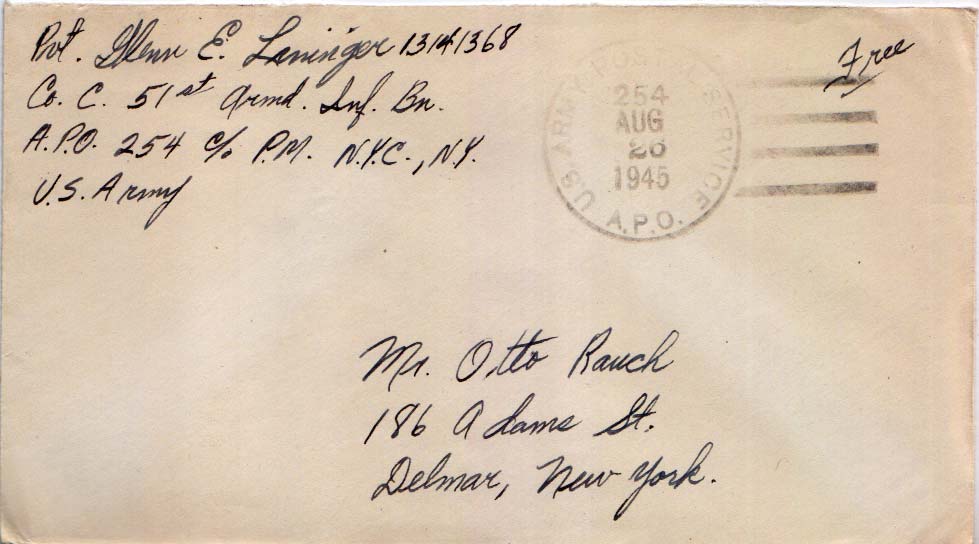 Pvt. Glenn E. Lininger 13141368
Co. C. 51st Armd. Inf. Bn.
A.P.O. 254 c/o P.M. N.Y.C., N.Y.
U.S. Army
Free
U.S. ARMY POSTAL SERVICE
254
AUG
26
1945
A.P.O.
Mr. Otto Rauch
186 Adams St.
Delmar, New York.